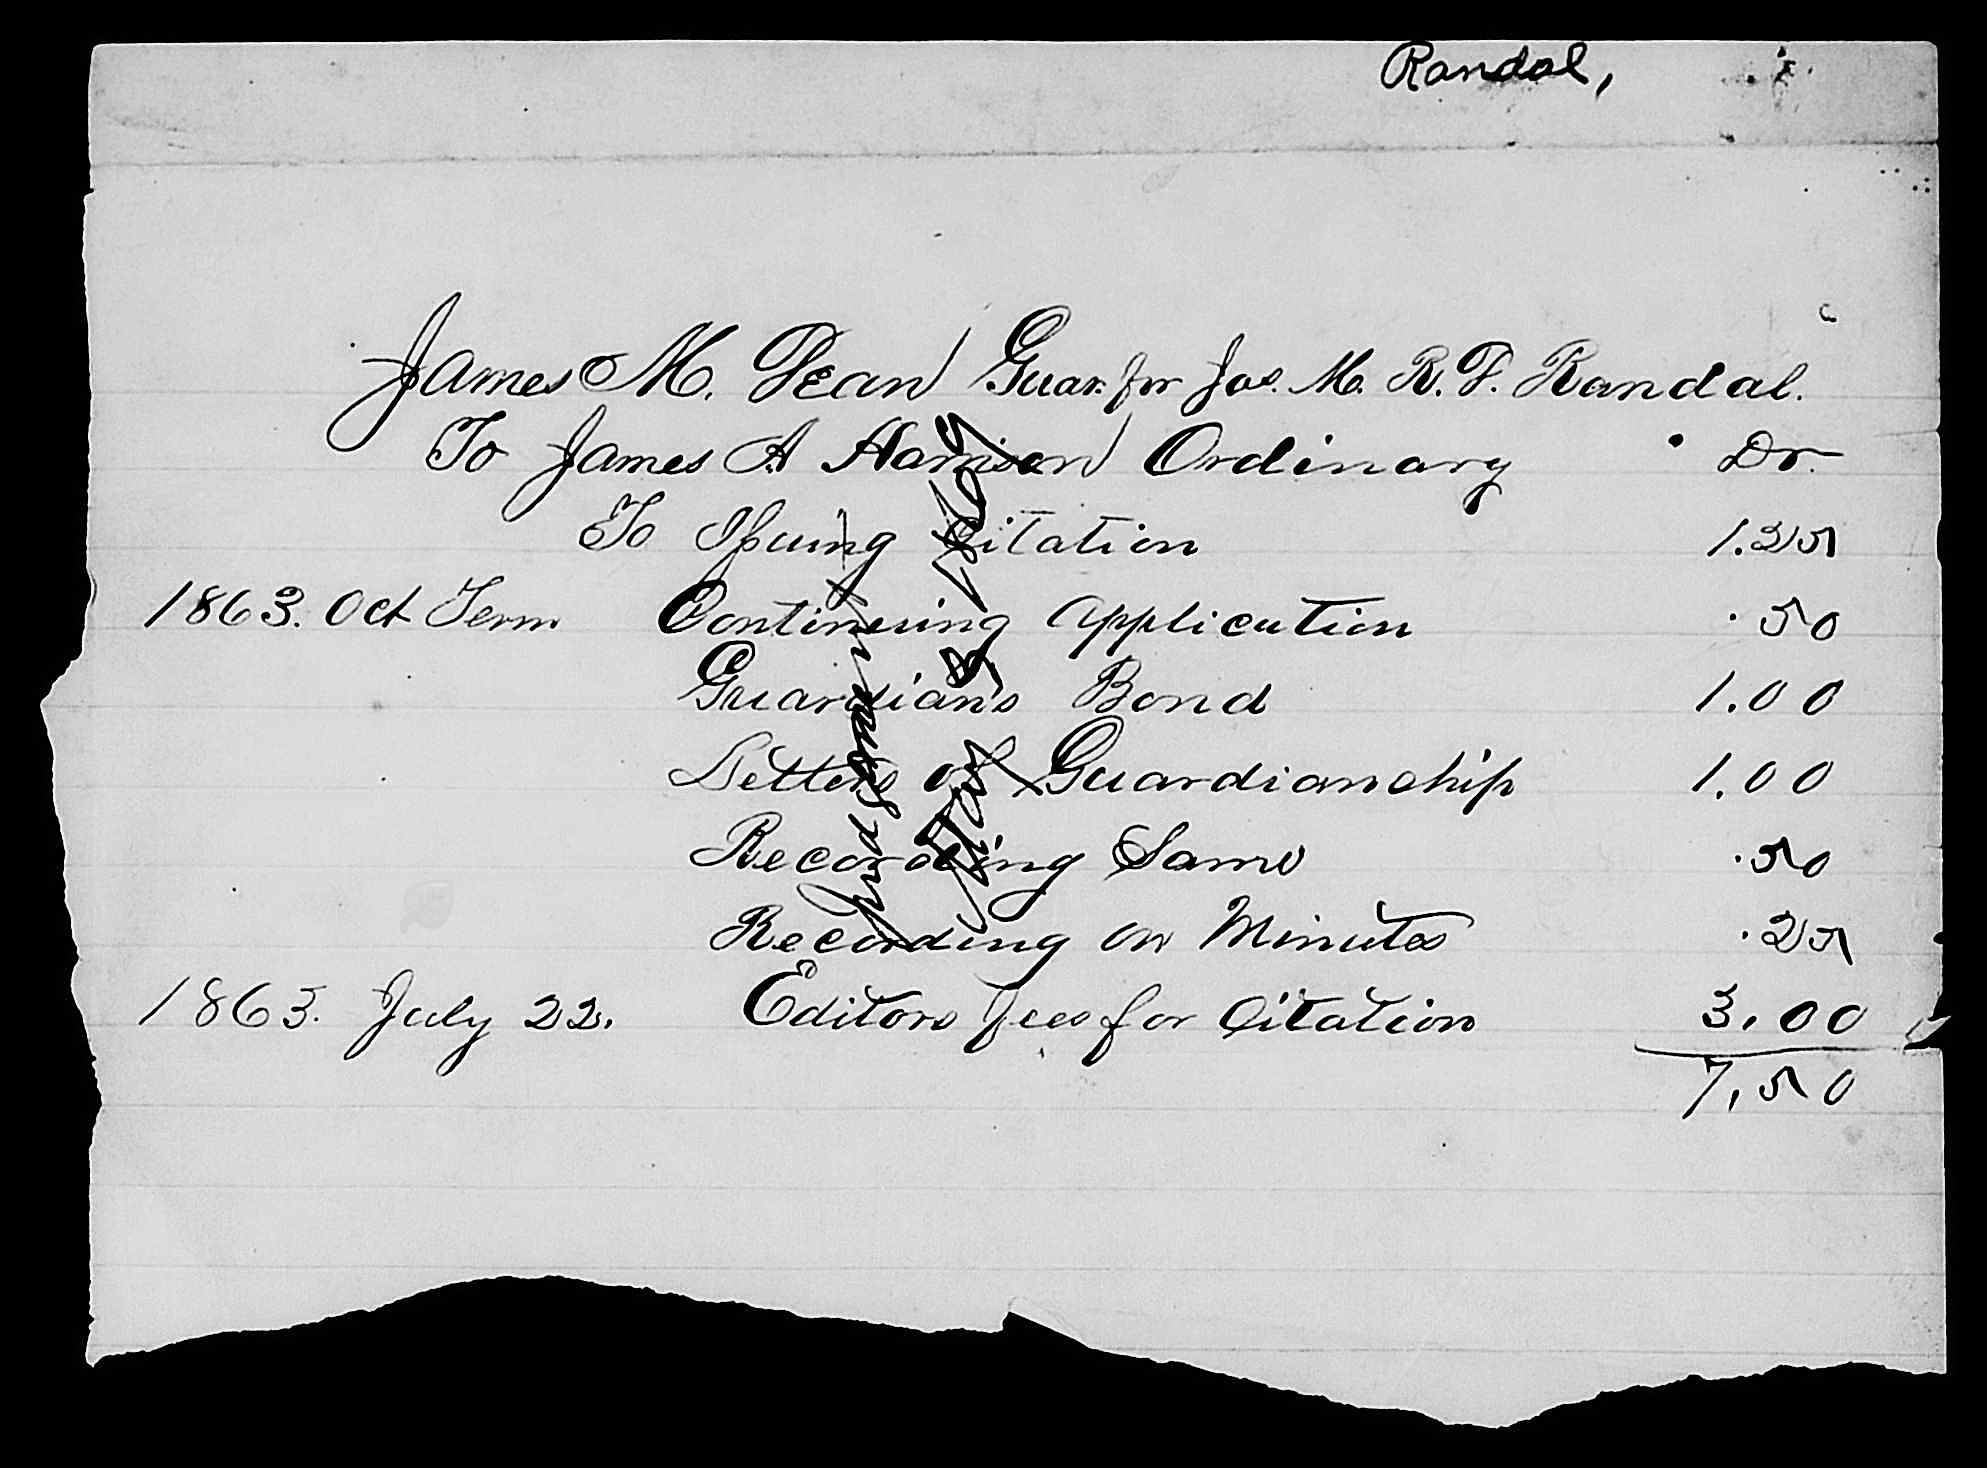 Randal,
James M. Dean Guar. for Jas. M. R. F. Randal.
To James A Harrison Ordinary Dr.
To Issuing Citation 1.25
1863. Oct Term Continuing Application .50
Guardians Bond 1.00
Letters of Guardianship 1.00
Recording Same .50
Recording on Minutes .25
1863. July 22. Editors fees for Citation 3.00
7.50